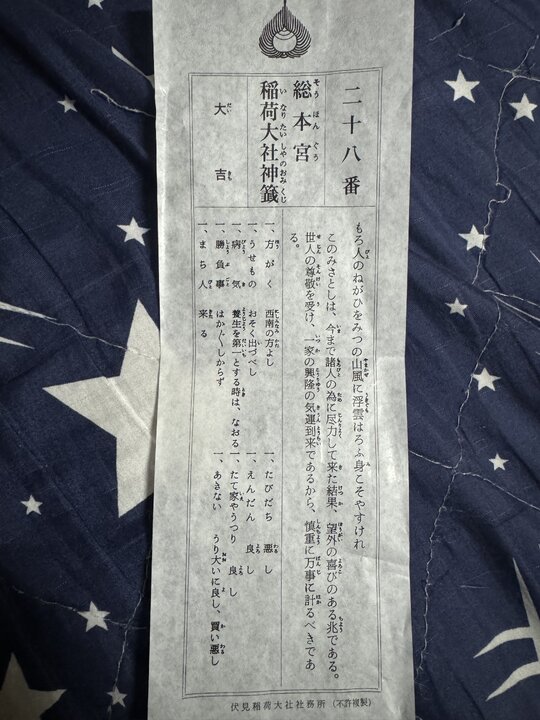 二十八番
総本宮
稲荷大社神籤
大吉
もろ人のねがひをみつの山風に浮雲はろふ身こそやすけれ
このみさとしは、今まで諸人の為に尽力して来た結果、望外の喜びのある兆である。
世人の尊敬を受け、一家の興隆の気運到来であるから、慎重に万事に計るべきであ
る。
一、方がく 西南の方よし
一、うせもの おそく出づべし
一、病気 養生を第一とする時は、なおる
一、勝負事 はか〴〵しからず
一、まち人 来る
一、たびだち 悪し
一、えんだん 良し
一、たて家やうつり 良し
一、あきない うり大いに良し、買い悪し
伏見稲荷大社社務所(不許複製)